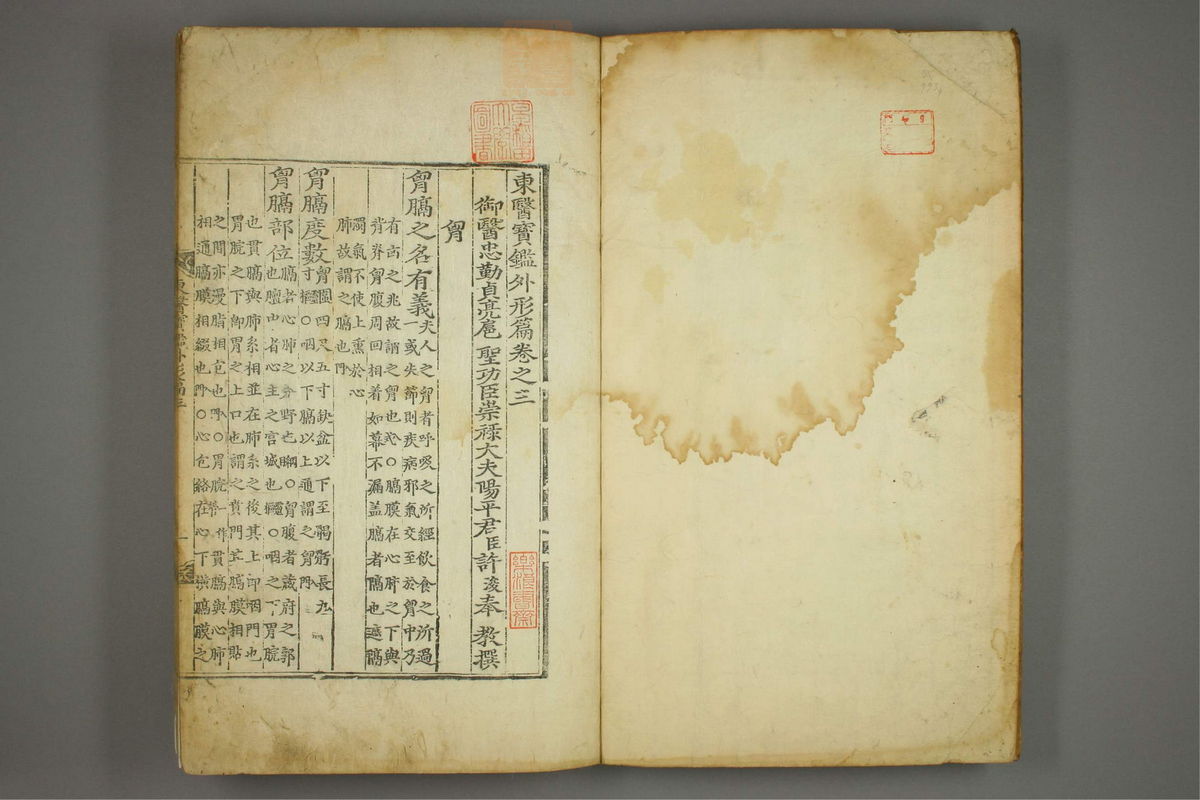 東醫寶鑑外形篇卷之三
御醫忠勤貞亮扈 聖功臣崇祿大夫陽平君臣許浚奉 教撰
胷
胷膈之名有義
夫人之胷者呼吸之所經飮食之所過
一或失節則疾病邪氣交至於胷中乃
有凶之兆故謂之胷也○膈膜在心肺之下與
脊脅胷腹周回相着如幕不漏盖膈者隔也遮隔
濁氣不使上熏於心
肺故謂之膈也入門
胷膈度數
胷圍四尺五寸缺盆以下至𩩲骬長九
寸靈樞○咽以下膈以上通謂之胷入門
胷膈部位
膈者心肺之分野也綱目○胷腹者藏府之郭
也膻中者心主之宮城也靈樞○咽之下胃脘
也貫膈與肺系相並在肺系之後其上卽咽門也
胃脘之下卽胃之上口也謂之賁門其膈膜相貼
之間亦漫脂相包也入門○胃脘一作貫膈與心肺
相通膈膜相綴也入門○心包絡在心下橫膈膜之
東醫寶鑑外形篇三